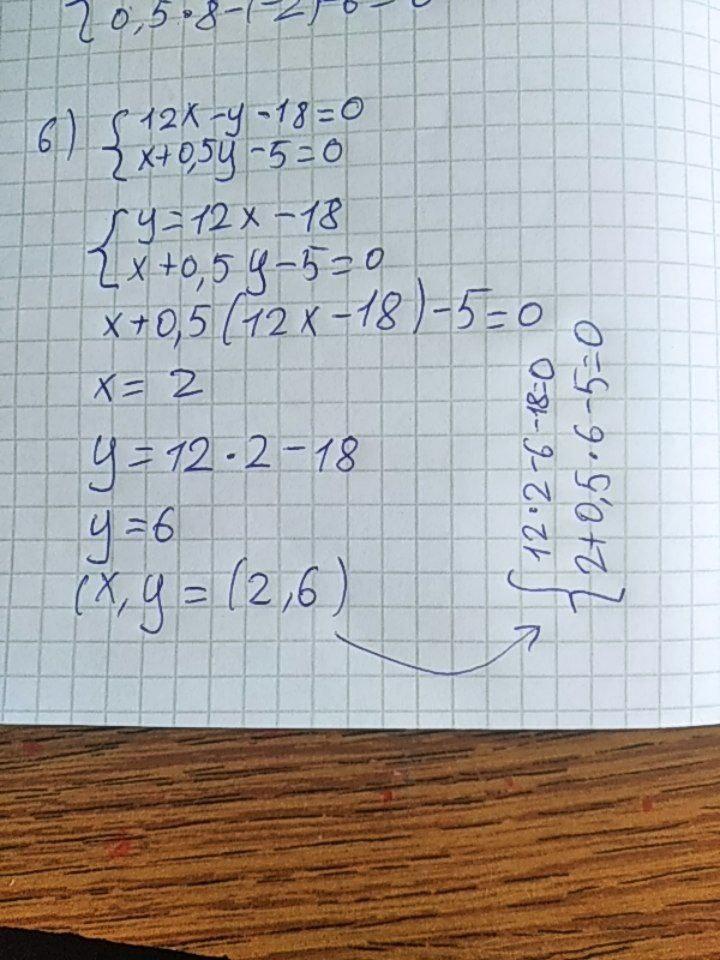 {0,5·8-(-2)-6=0
6) {12x-y-18=0
{x+0,5y-5=0
{y=12x-18
{x+0,5y-5=0
x+0,5(12x-18)-5=0
x=2
y=12·2-18
y=6
(x,y=(2,6)
{12·2-6-18=0
{2+0,5·6-5=0